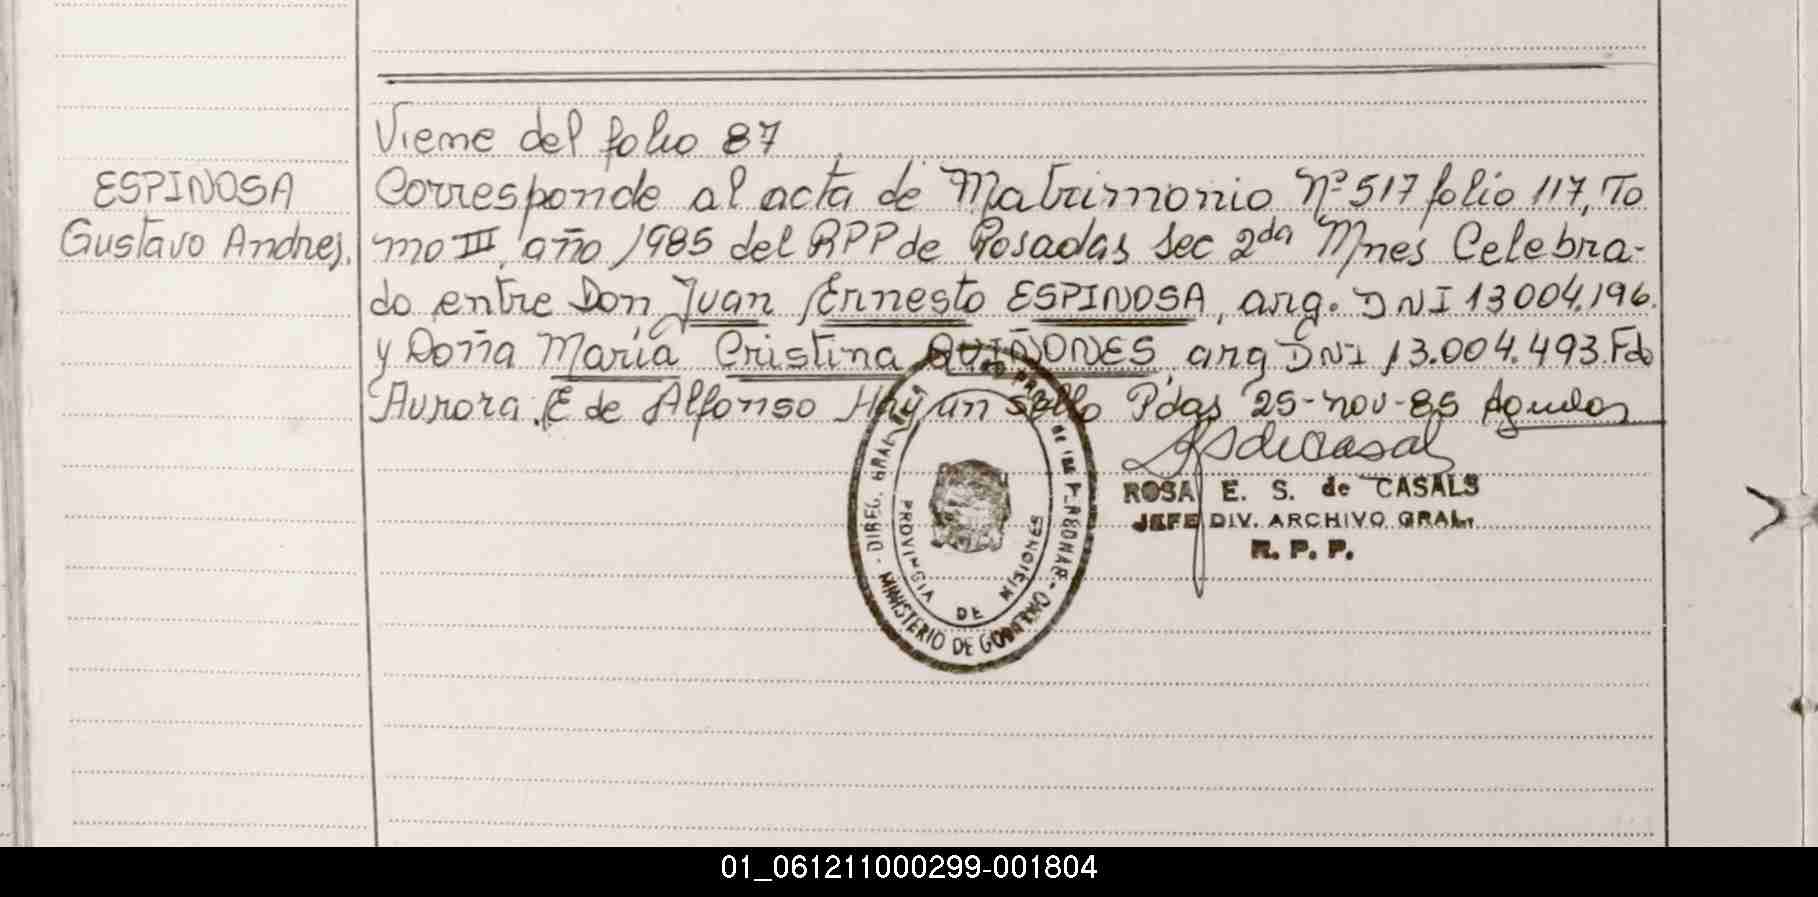 Viene del folio 87
ESPINOSA
Gustavo Andres.
Corresponde al acta de Matrimonio Nº 517 folio 117, To
mo III, año 1985 del RPP de Posadas Sec 2da Mnes Celebra-
do entre Don Juan Ernesto ESPINOSA, arg. DNI 13004.196.
y Doña María Cristina QUIÑONES, arg DNI 13.004.493. Fdo
Aurora E de Alfonso Hay un sello Pdas 25-nov-85
ROSA E. S. de CASALS
JEFE DIV. ARCHIVO GRAL.
R. P. P.
DIREC. GRAL
MINISTERIO DE GOBIERNO
PROVINCIA DE MISIONES
01_061211000299-001804